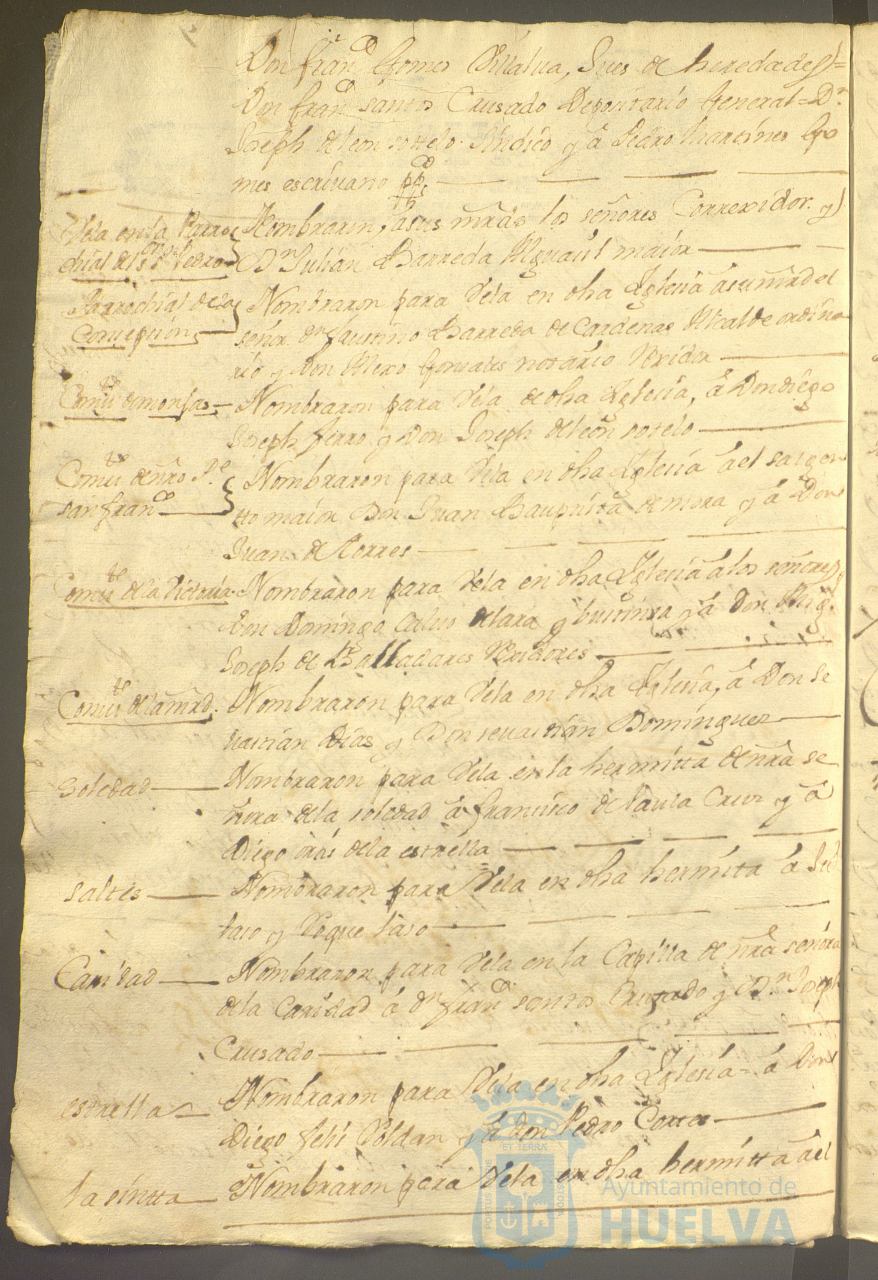 Don fran.co Gomes Villalua, Jues de heredades=
Don fran.co santos Crusado Depositario General= D.n
Joseph de leon sottelo. Sindico y â Pedro Martines Go
mes escriuano pp.co
Vela en la Parro
chial de s.r s.n Pedro
Nombraron, âsus mrds los señores Correxidor. y
D.n Julian Barreda Alguasil maior
Parrochial de la
Consepsion
Nombraron para Vela en dha Iglesia âsumrd el
señor d.n faustino Barreda de Cardenas Alcalde ordina
rio y Don Alexo Gonsales notario Rexidor
Com.to de monjas
Nombraron para Vela de dha Iglesia, â Don diego
Joseph fierro y Don Joseph de leon sotelo
Com.to de nro P.e
san fran.co
Nombraron para Vela en dha Iglesia âel sargen
tto maior Don Juan Bauptista de mora y â Don
Juan de Torres
Com.to de la Victoria
Nombraron para Vela en dha Iglesia âlos señores
Don Domingo Caluo de lara y y â Don Mig.l
Joseph de Balladares Rexidores
Com.to de la mrd.
Nombraron para Vela en dha Iglesia, â Don se
uastian Dias y Don seuastian Dominguez
Soledad
Nombraron para Vela en la hermitta de nra se
ñora de la soledad â francisco de Paula Cruz y â
Diego de la estrella
saltes
Nombraron para Vela en dha hermita â
y Roque
Caridad
Nombraron para Vela en la Capilla de nra señora
de la Caridad â d.n fran.co santos Crusado y D.n Joseph
Crusado
estrella
Nombraron para Vela en dha Iglesia= â Don
Diego felis Roldan y â Don Pedro Cortes
la sintta
Nombraron para Vela en dha hermitta âel
Ayuntamiento de
HUELVA